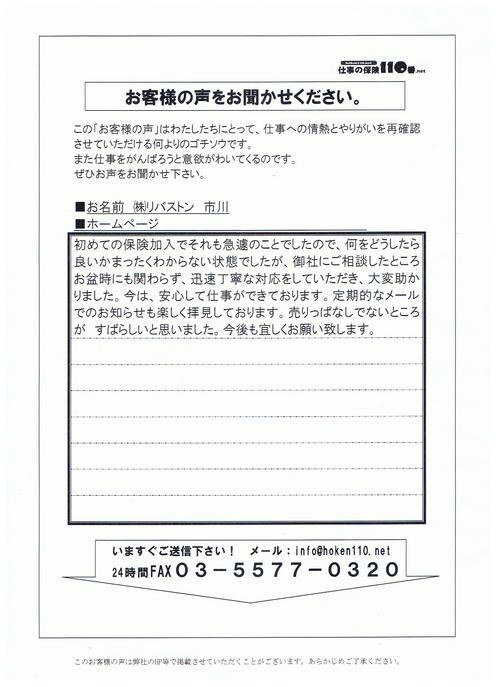 仕事の保険110番.net
お客様の声をお聞かせください。
この「お客様の声」はわたしたちにとって、仕事への情熱とやりがいを再確認
させていただける何よりのゴチソウです。
また仕事をがんばろうと意欲がわいてくるのです。
ぜひお声をお聞かせ下さい。
■お名前 ㈱リバストン 市川
■ホームページ
初めての保険加入でそれも急遽のことでしたので、何をどうしたら
良いかまったくわからない状態でしたが、御社にご相談したところ
お盆時にも関わらず、迅速丁寧な対応をしていただき、大変助か
りました。今は、安心して仕事ができております。定期的なメール
でのお知らせも楽しく拝見しております。売りっぱなしでないところ
が すばらしいと思いました。今後も宜しくお願い致します。
いますぐご送信下さい! メール:info@hoken110.net
24時間FAX03-5577-0320
このお客様の声は弊社のHP等で掲載させていただくことがございます。あらかじめご了承ください。